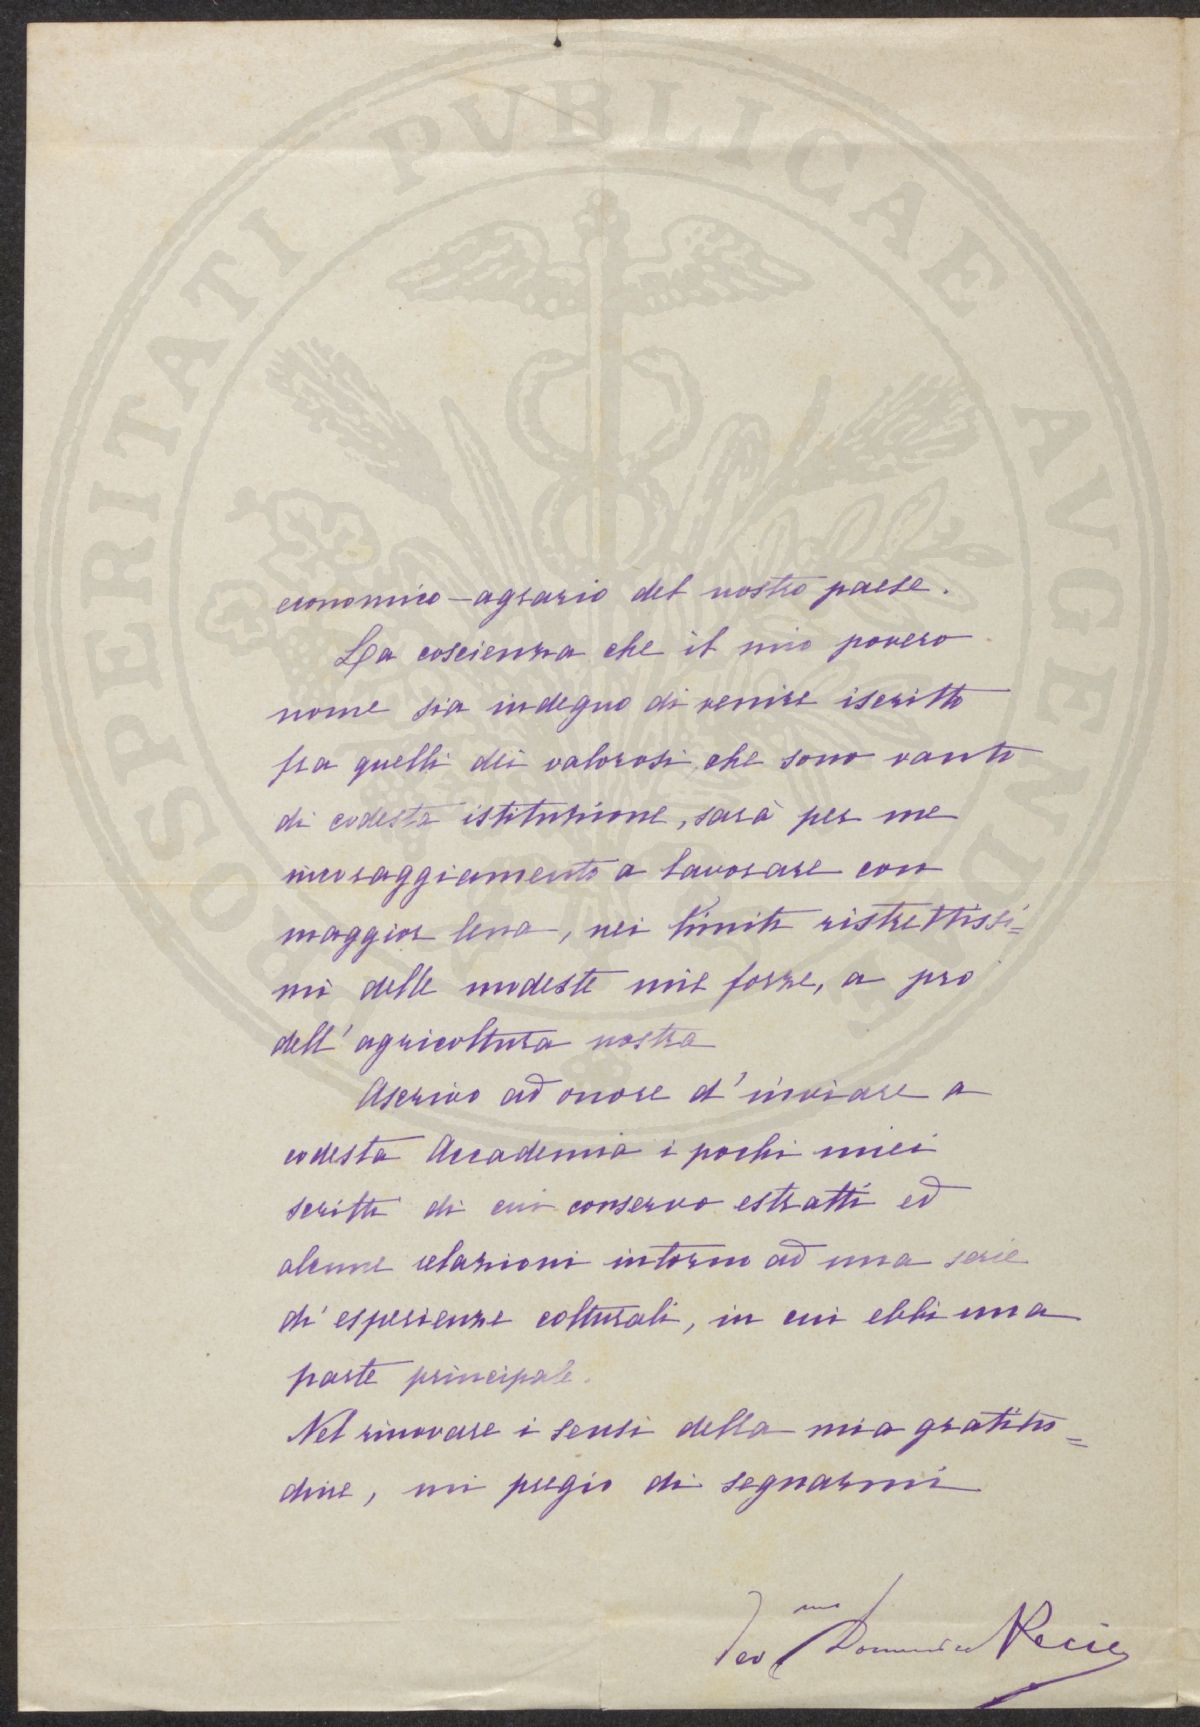 PROSPERITATI PUBLICAE AVGENDAE
economico-agrario del nostro paese.
La coscienza che il mio povero
nome sia indegno di venire iscritto
fra quelli dei valorosi, che sono vanto
di codesta istituzione, sarà per me
incoraggiamento a lavorare con
maggior lena, nei limiti ristrettissi=
mi delle modeste mie forze, a pro
dell'agricoltura nostra
Ascrivo ad onore d'inviare a
codesta Accademia i pochi miei
scritti di cui conservo estratti ed
alcune relazioni intorno ad una serie
di esperienze colturali, in cui ebbi una
parte principale.
Nel rinovare i sensi della mia gratitu=
dine, mi pregio di segnarmi
Dev mo Domenico